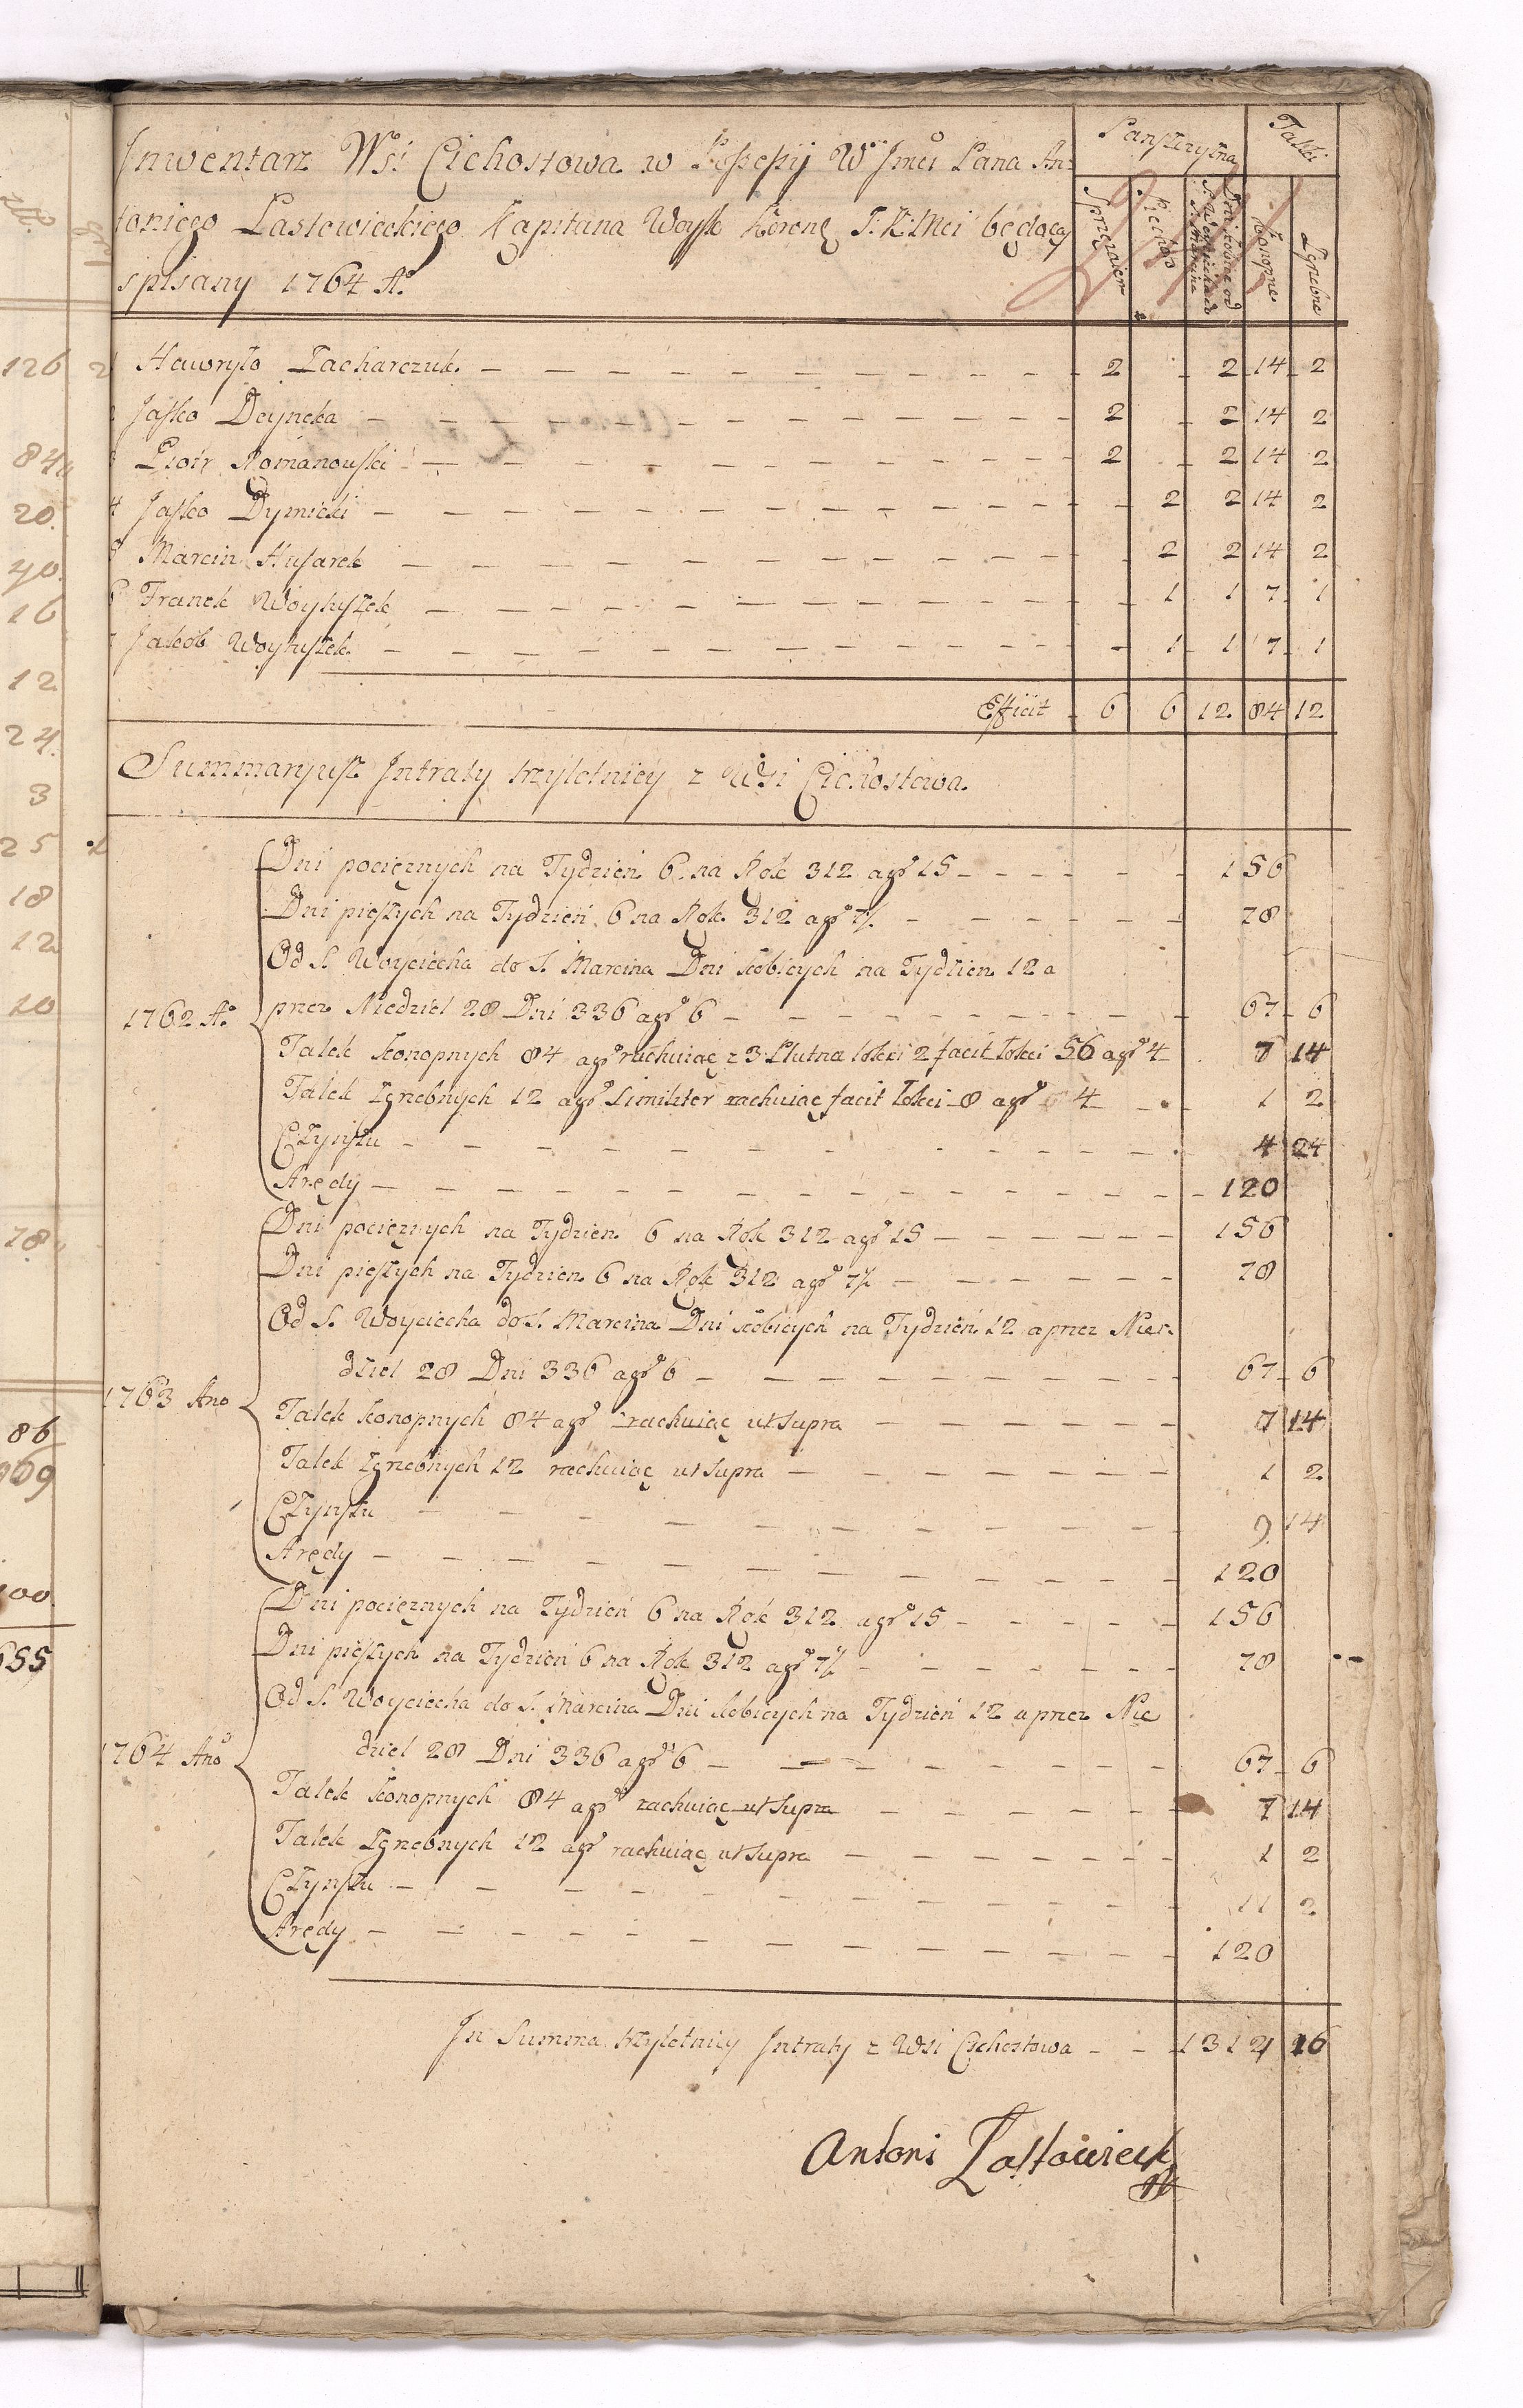 Inwentarz Wsi Cichostowa w Possessyi W Jmci Pana An=
toniego Łastowieckiego Kapitana Woysk Koronę J: K: Mci będący
spisany 1764 Aº
Pańszczyzna Talki
Sprzężajem Piechoto Dni kobiece od S. Woyciecha do S. Marcina Konopne Zgrzebne
Hawryło Zacharczuk 2 2 14 2
Jaśko Deyneka 2 2 14 2
Piotr Romanowski 2 2 14 2
4 Jaśko Dymicki 2 2 14 2
Marcin Husarek 2 2 14 2
6 Franek Woytyszek 1 1 7 1
Jakób Woytyszek 1 1 7 1
Efficit 6 6 12 84 12
Summaryusz Jntraty trzyletniey z Wsi Cichostowa
1762 Aº
Dni pociężnych na Tydzień 6 na Rok 312 a gr 15 156
Dni pieszych na Tydzień 6 na Rok 312 a gr 7½ 78
Od S. Woyciecha do S. Marcina Dni kobicych na Tydzien 12 a
przez Niedziel 28 Dni 336 a gr 6 67 6
Talek konopnych 84 a gr rachuiąc z 3 Płutna łokci 2 facit łokci 56 a gr 4 7 14
Talek Zgrzebnych 12 a gr Similiter rachuiąc facit łokci 8 a gr 4 1 2
Czynszu 4 24
Arędy 120
1763 Ano
Dni pociężnych na Tydzien 6 na Rok 312 a gr 15 156
Dni pieszych na Tydzien 6 na Rok 312 a gr 7½ 78
Od S. Woyciecha do S. Marcina Dni kobicych na Tydzień 12 a przez Nie=
dziel 28 Dni 336 a gr 6 67 6
Talek konopnych 84 a gr rachuiąc ut supra 7 14
Talek Zgrzebnych 12 rachuiąc ut supra 1 2
Czynszu 9 14
Arędy 120
1764 Anº
Dni pociężnych na Tydzień 6 na Rok 312 a gr 15 156
Dni pieszych na Tydzień 6 na Rok 312 a gr 7½ 78
Od S. Woyciecha do S. Marcina Dni kobicych na Tydzień 12 a przez Nie
dziel 28 Dni 336 a gr 6 67 6
Talek konopnych 84 a gr rachuiąc ut supra 7 14
Talek Zgrzebnych 12 a gr rachuiąc ut supra 1 2
Czynszu 11 2
Arędy 120
Jn Summa trzyletniey Jntraty z Wsi Cichostowa 1314 16
Antoni Łastowiecki
126
20
40
16
12
24
3
25
18
12
10
78
86